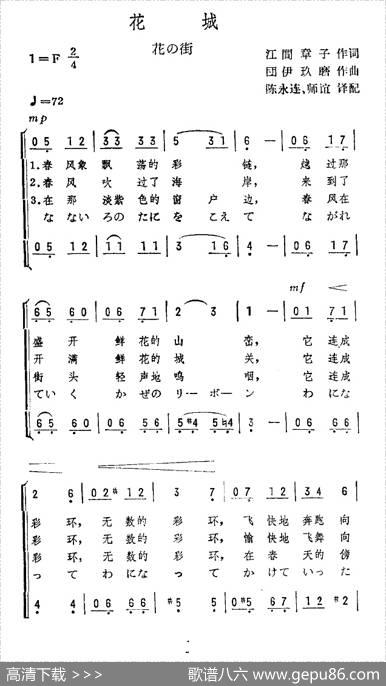 花 城
花の街
1=F 2/4
江間章子 作词
団伊玖磨 作曲
陈永连、师谊 译配
♩=72
mp
0 5 1 2 | 3 3 3 3 | 5 3 1 | 6 — | 0 6 1 7 |
1.春 风象 飘 荡的 彩 链, 越 过那
2.春 风 吹 过了 海 岸, 来 到了
3.在 那 淡紫 色的 窗 户 边, 春 风在
なな いろの たに を こえ て ながれ
0 5 1 2 | 1 1 1 1 | 3 1 6 | 4 — | 0 6 1 7 |
mf
6 5 6 0 | 0 6 7 1 | 2 3 | 1 — | 0 1 7 1 |
盛 开 鲜 花的 山 峦, 它 连成
开 满 鲜 花的 城 关, 它 连成
街 头 轻 声地 呜 咽, 它 连成
ていく かぜの リーボーン わにな
6 5 6 0 | 0 6 6 6 | 5 #4 5 ♮4 | 3 — | 0 6 7 1 |
2 6 | 0 2 #1 2 | 3 7 | 0 7 1 2 | 3 4 6 |
彩 环, 无 数的 彩 环, 飞 快地 奔跑 向
彩 环, 无 数的 彩 环, 愉 快地 飞舞 向
彩 环, 无 数的 彩 环, 在 春 天的 傍
って わにな って かけて いった
4 4 | 0 6 6 6 | #5 5 | 0 6 #5 6 | 5 5 |
高清下载 >>>
歌谱八六 www.gepu86.com